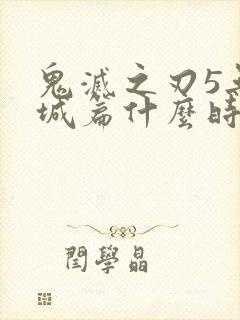 鬼滅之刃5
城篇什麼時
閆學晶